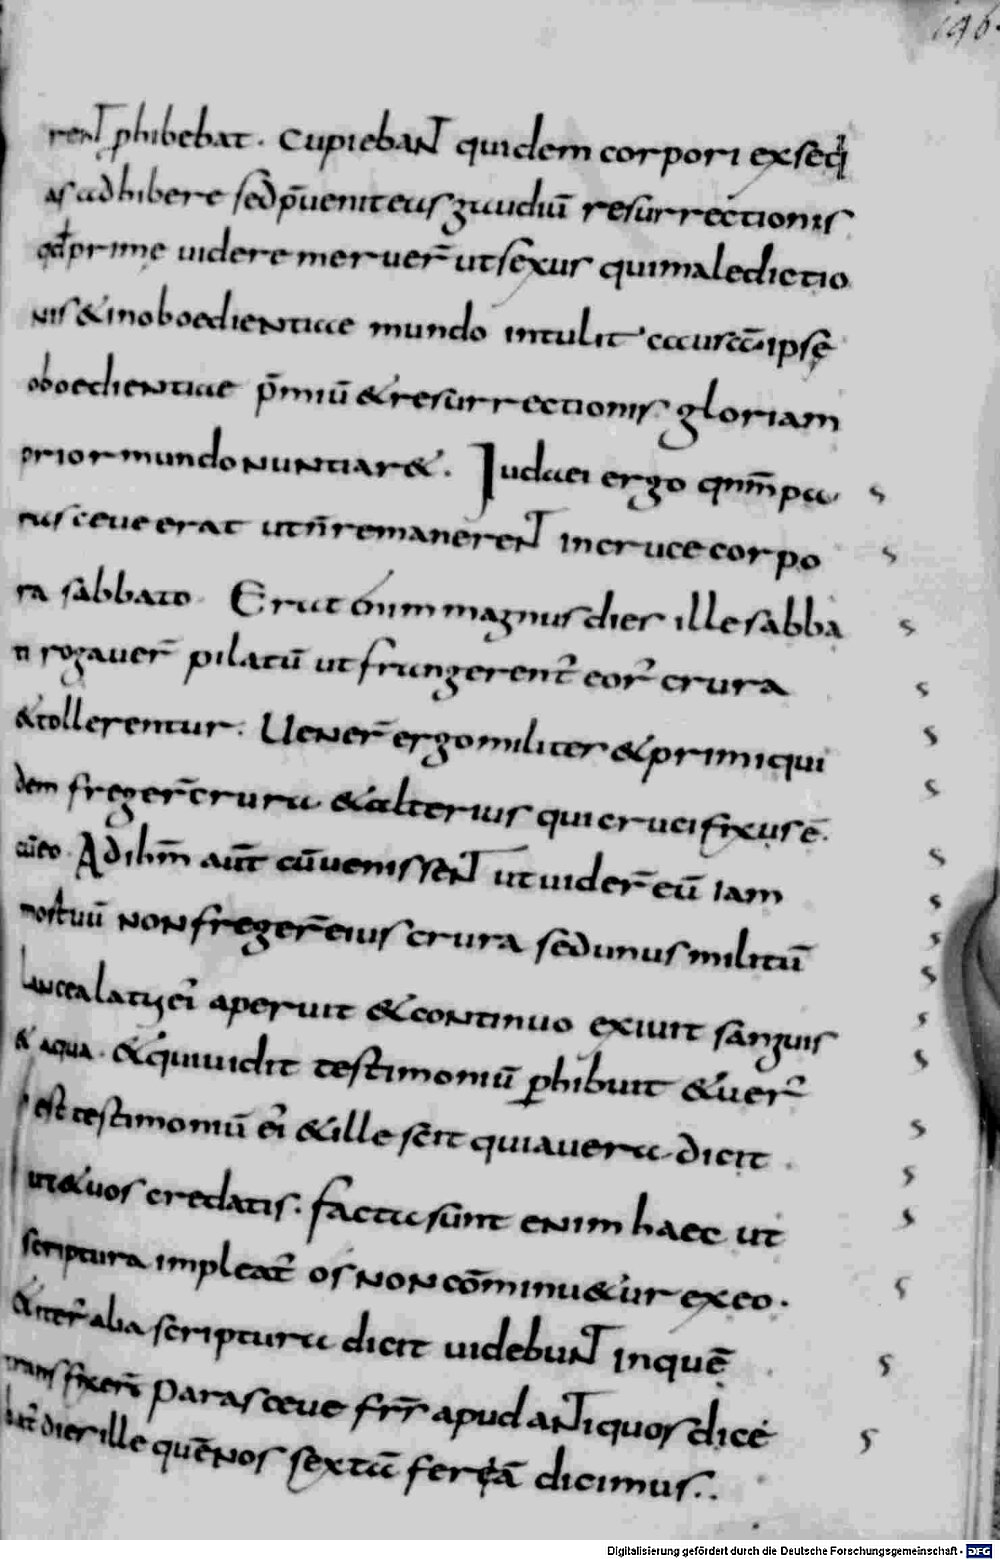 196
rent phibebat. Cupiebant quidem corpori exseq
as adhibere sed p̄uenit eas gaudiū resurrectionis
qd̄ prime uidere meruer̄ ut sexus qui maledictio
nis & inoboedientiae mundo intulit ipse
oboedientiae p̄miū & resurrectionis gloriam
prior mundo nuntiar&. Iudaei ergo qnm̄ pa
rasceue erat ut ñ remanerent in cruce corpo
ra sabbato. Erat enim magnus dies ille sabba
ti rogauer̄ pilatū ut frangerent̄ eor̄ crura
& tollerentur. Uener̄ ergo milites & primi qui
dem freger̄ crura & alterius qui crucifixus ē
cū eo. Ad ihm̄ aūt cū uenissent ut uider̄ eū iam
mortuū non freger̄ eius crura sed unus militū
lancea latus ei' aperuit & continuo exiuit sanguis
& aqua. & qui uidit testimoniū phibuit & uer̄
est testimoniū ei' & ille scit quia uera dicit
ut & uos credatis. facta sunt enim haec ut
scriptura impleat̄ os non cōminu&ur ex eo.
& iter̄ alia scriptura dicit uidebunt in quē
transfixer̄ Parasceue fr̄s apud antiquos dice
bat̄ dies ille quē nos sextā feriā dicimus..
Digitalisierung gefördert durch die Deutsche Forschungsgemeinschaft - DFG